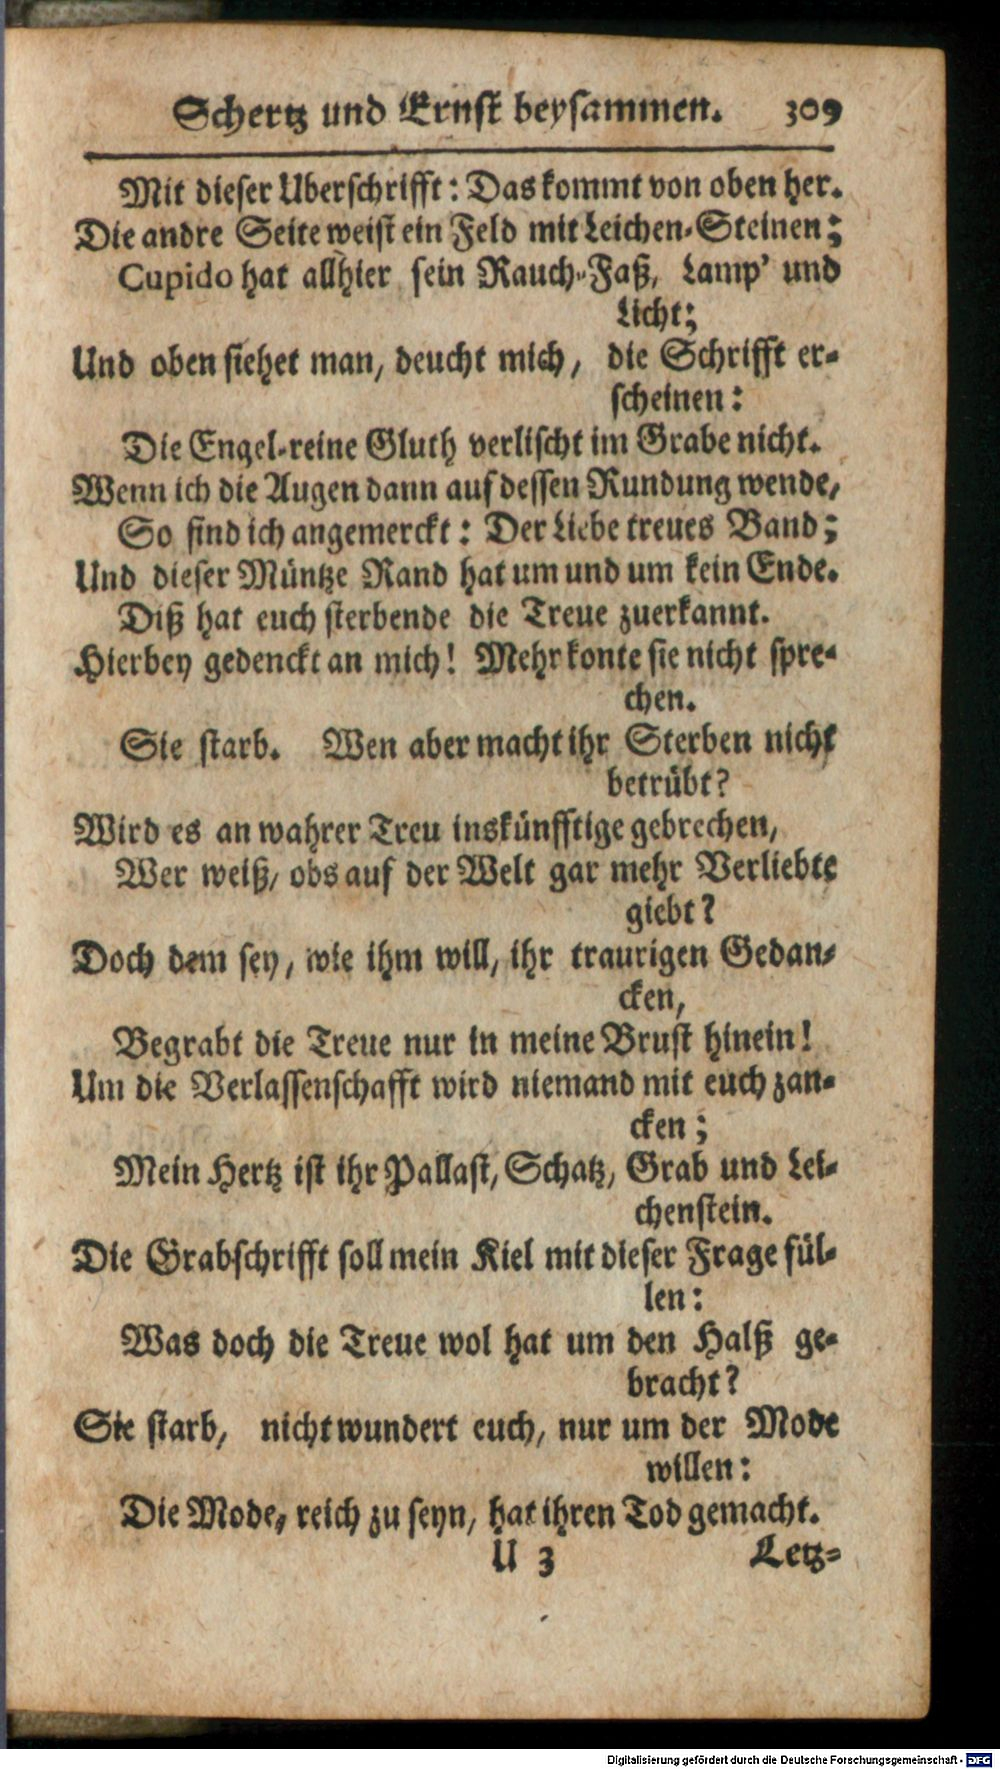 Schertz und Ernst beysammen. 309
Mit dieser Uberschrifft: Das kommt von oben her.
Die andre Seite weist ein Feld mit Leichen-Steinen;
Cupido hat allhier sein Rauch-Faß, Lamp' und
Licht;
Und oben siehet man, deucht mich, die Schrifft er-
scheinen:
Die Engel-reine Gluth verlischt im Grabe nicht.
Wenn ich die Augen dann auf dessen Rundung wende,
So find ich angemerckt: Der Liebe treues Band;
Und dieser Müntze Rand hat um und um kein Ende.
Diß hat euch sterbende die Treue zuerkannt.
Hierbey gedenckt an mich! Mehr konte sie nicht spre-
chen.
Sie starb. Wen aber macht ihr Sterben nicht
betrübt?
Wird es an wahrer Treu inskünfftige gebrechen,
Wer weiß, obs auf der Welt gar mehr Verliebte
giebt?
Doch dem sey, wie ihm will, ihr traurigen Gedan-
cken,
Begrabt die Treue nur in meine Brust hinein!
Um die Verlassenschafft wird niemand mit euch zan-
cken;
Mein Hertz ist ihr Pallast, Schatz, Grab und Lei-
chenstein.
Die Grabschrifft soll mein Kiel mit dieser Frage fül-
len:
Was doch die Treue wol hat um den Halß ge-
bracht?
Sie starb, nicht wundert euch, nur um der Mode
willen:
Die Mode, reich zu seyn, hat ihren Tod gemacht.
U 3 Letz-
Digitalisierung gefördert durch die Deutsche Forschungsgemeinschaft - DFG